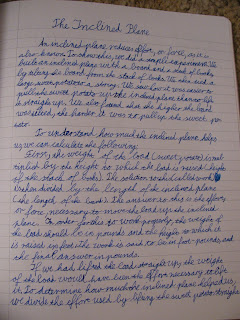 The Inclined Plane
An inclined plane reduces effort, or force, as it is
also known. To show this, we did a simple experiment. We
built an inclined plane with a board and a stack of books,
by placing the board from the stack of books. We then tied a
large sweet potato to a string. We saw how it was easier to
pull the sweet potato up the inclined plane than to lift
it straight up. We also found that the higher the board
was raised, the harder it was to pull up the sweet po-
tato.
To understand how much the inclined plane helps
us you can calculate the following:
First, the weight of the load (sweet potato) is mul-
tiplied by the height to which the load is raised (height
of the stack of books). The solution to this called work
is then divided by the length of the inclined plane
(the length of the board). The answer to this is the effort,
or force, necessary to move the load up the inclined
plane. In order for this to work properly, the weight of
the load should be in pounds and the height to which it
is raised in feet. The work is said to be in foot-pounds, and
the final answer in pounds.
If we had lifted the load straight up, the weight
of the load would have been the effort necessary to lift
it. To determine how much the inclined plane helped us,
we divide the effort used by lifting the sweet potato straight